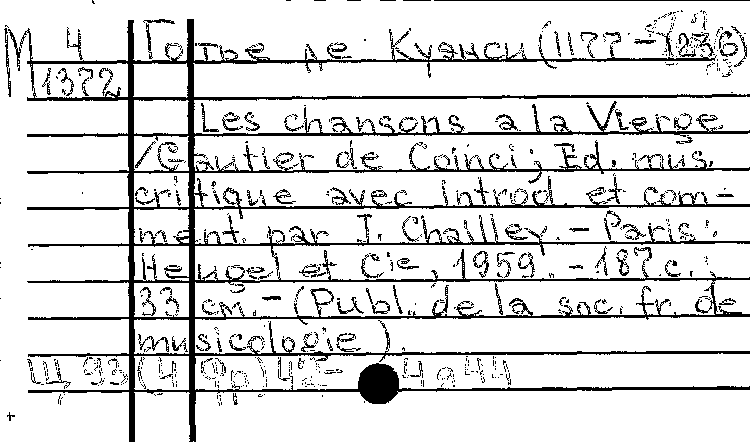 М 4 Готье де Куэнси (1177-1236)
1372
Les chansons a la Vierge
/Gautier de Coinci; Ed. mus.
critique avec introd. et com-
ment. par J. Chailley. - Paris:
Heugel et Cie, 1959. - 187 с.;
33 см. - (Publ. de la soc. fr. de
musicologie).
Щ 93 (4 Фр) 4